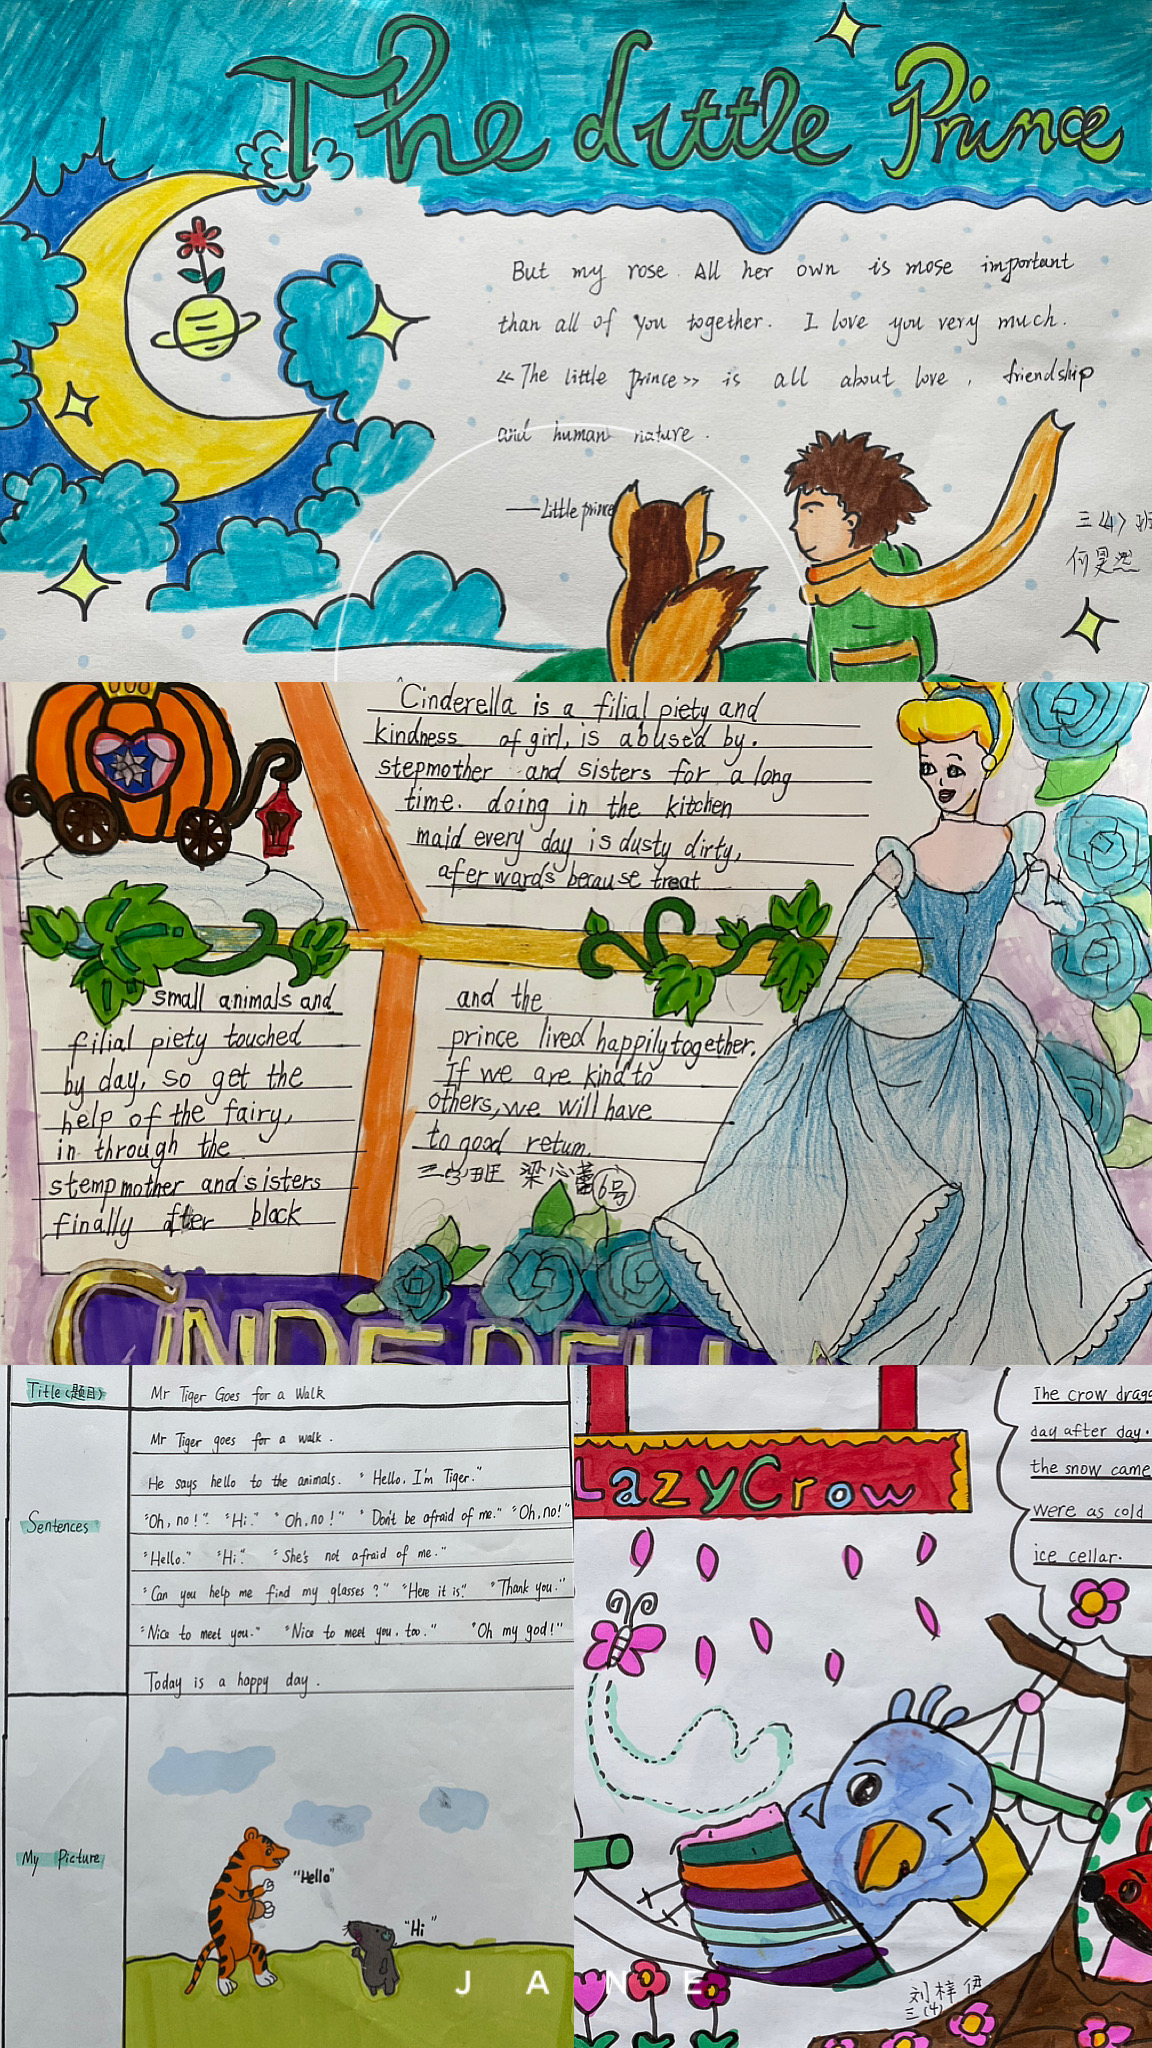 The Little Prince
But my rose. All her own is mose important
than all of you together. I love you very much.
<<The little prince>> is all about love, friendship
and human nature.
—Little prince
三<4>班
何昊然
Cinderella is a filial piety and
kindness of girl, is abused by.
stepmother and sisters for a long
time. doing in the kitchen
maid every day is dusty dirty,
afer wards because treat
small animals and
filial piety touched
by day, so get the
help of the fairy,
in through the
stempmother and sisters
finally after black
and the
prince lived happily together.
If we are kind to
others, we will have
to good return.
班 梁心蕾 6号
CINDERELLA
Title(题目)
Mr Tiger Goes for a Walk
Sentences
Mr Tiger goes for a walk.
He says hello to the animals. "Hello. I'm Tiger."
"Oh, no!" "Hi." "Oh, no!" "Don't be afraid of me." "Oh, no!"
"Hello." "Hi." "She's not afraid of me."
"Can you help me find my glasses?" "Here it is." "Thank you."
"Nice to meet you." "Nice to meet you, too." "Oh my god!"
Today is a happy day.
My Picture
"Hello"
"Hi"
Lazy Crow
The crow drag
day after day.
the snow came
were as cold
ice cellar.
刘梓伊
三(4)
JANE